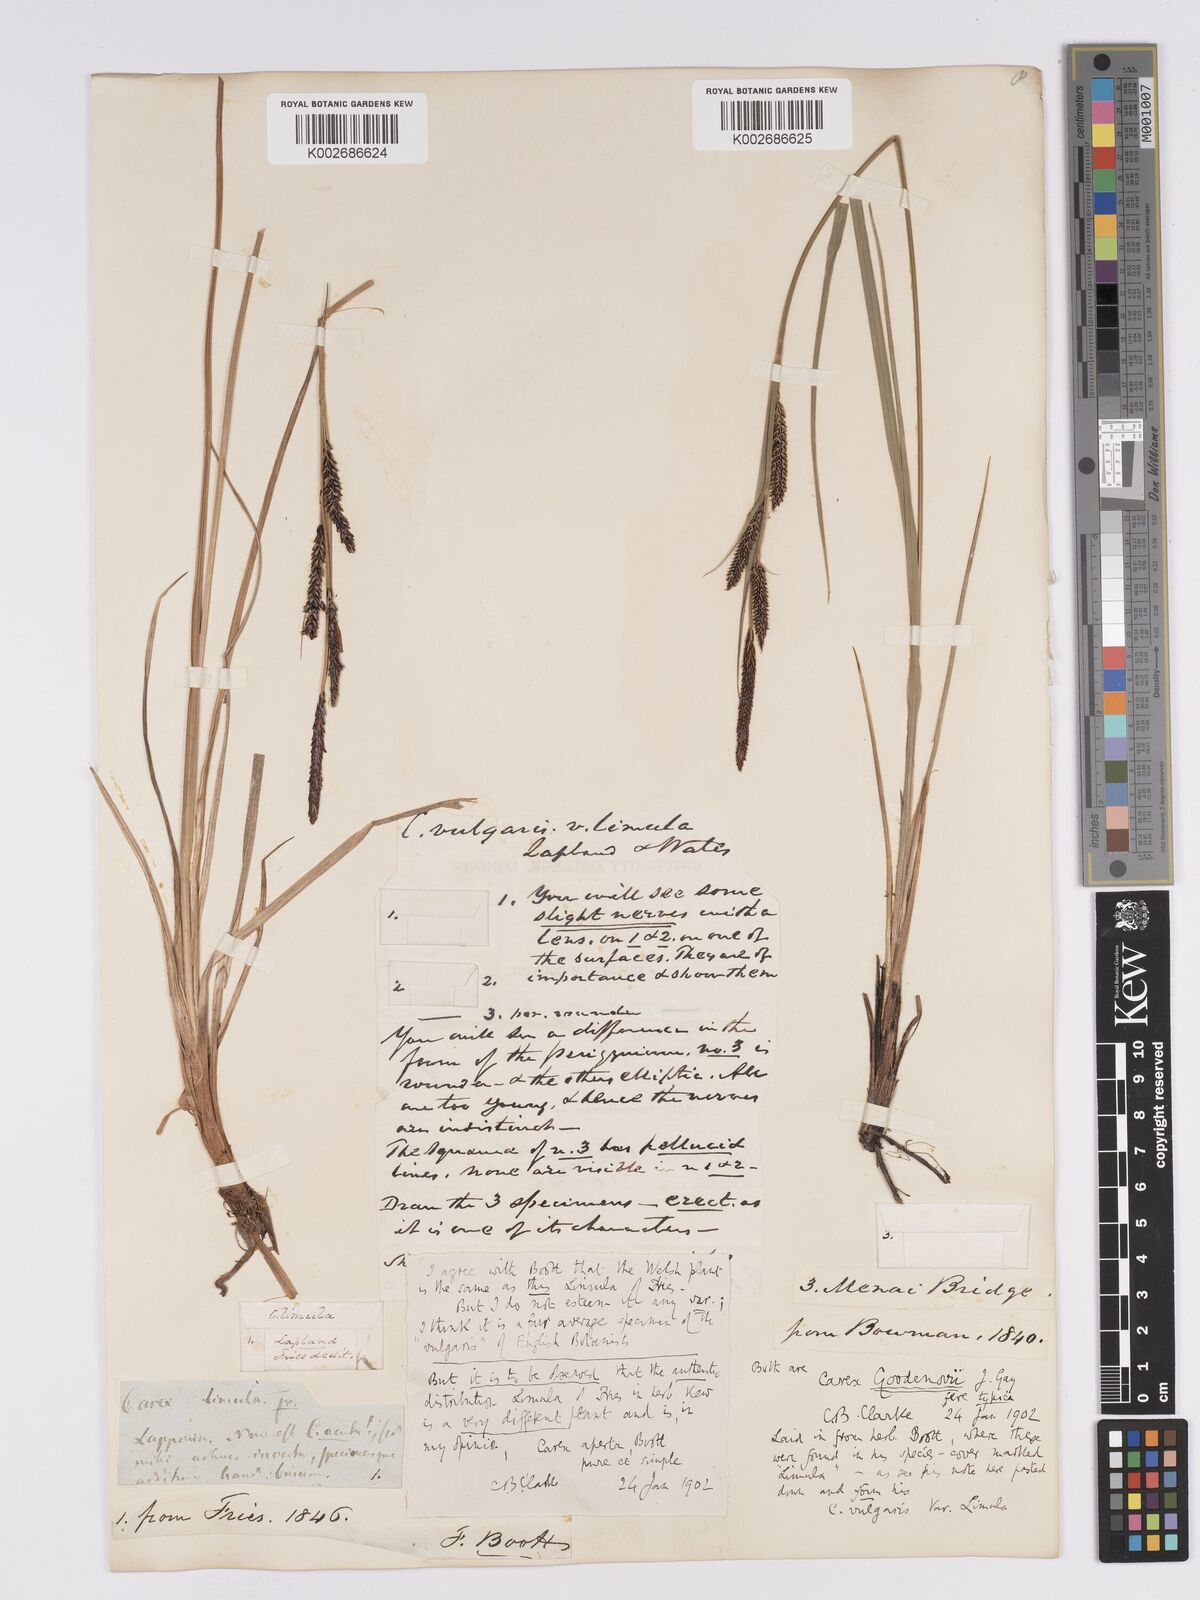 ROYAL BOTANIC GARDENS KEW
K002686624
ROYAL BOTANIC GARDENS KEW
K002686625
C. vulgaris. v. limula
Lapland & Wales
1.
1. You will see some
slight nerves with a
lens. on 1 & 2. on one of
the surfaces. They are of
2
2. importance & show them
3. rounder
You will see a difference in the
form of the perigynium. no. 3 is
rounder & the others elliptic. All
are too young, & hence the nerves
are indistinct —
The squama of n. 3 has pellucid
lines. None are visible in n 1 & 2 —
Draw the 3 specimens — erect. as
it is one of its characters —
I agree with Boott that the Welsh plant
is the same as this Limula of Fries —
But I do not esteem it any var.;
I think it is a fair average specimen of the
"vulgaris" of English Botanists
But it is to be observed that the authentic
distribution Limula of Fries in herb Kew
is a very different plant and is, in
my opinion, Carex aperta, Boott
pure et simple
CB Clarke 24 Jan 1902
F. Boott
C. limula
1. Lapland
Fries dedit.
Carex limula. fr.
Lapponia. Non est C.
1.
1. from Fries. 1846.
3.
3. Menai Bridge.
from Bowman. 1840.
Both are
Carex Goodenovii J. Gay
fere typica
CB. Clarke 24 Jan 1902
Laid in from herb Boott, where these
were found in his species-cover marked
"Limula" — as see his note here pasted
down and form his
C. vulgaris Var. Limula
centimeters
inches
M001007
Don Williams
Density
Royal Botanic Gardens
Kew
0 1 2 3 4 5 6 7 8 9 10
cm
copyright reserved